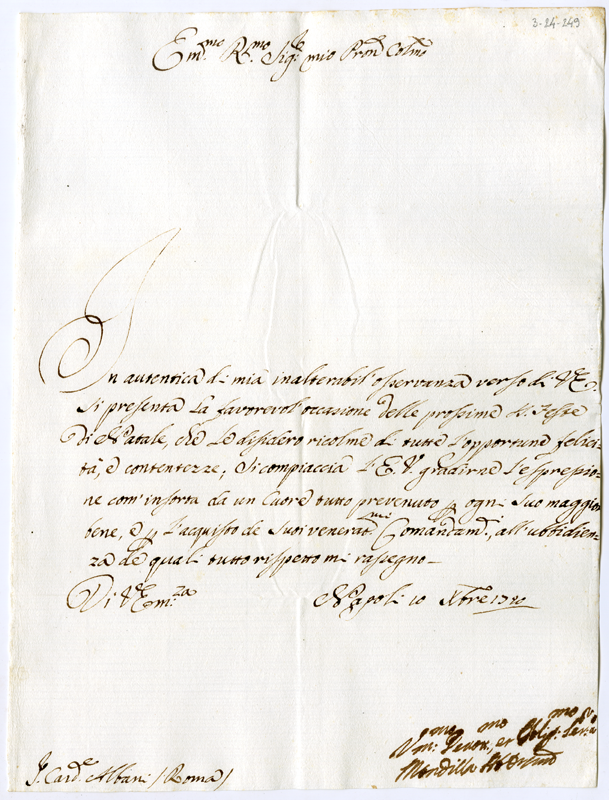 3-24-249
Em.mo R.mo Sig.re mio Pron Colmo
In autentica di mia inalterabil' osservanza verso di V.E.
si presenta la favorevol' occasione delle prossime S. Feste
di Natale, che le desidero ricolme di tutte l'opportune felici-
tà, e contentezze; Si compiaccia l'E.V. gradirne l'espressio-
ne com' insorta da un Cuore tutto prevenuto p ogni suo maggior
bene, e p l'acquisto de suoi venerat.mi Comandam.i, all'ubbidien-
za de quali tutto rispetto mi rassegno
Di V. Em.za Napoli 10 Xbre 1720
V.mo Devot.mo, et Oblig.mo
Mondilla
S. Card.e Albani (Roma)